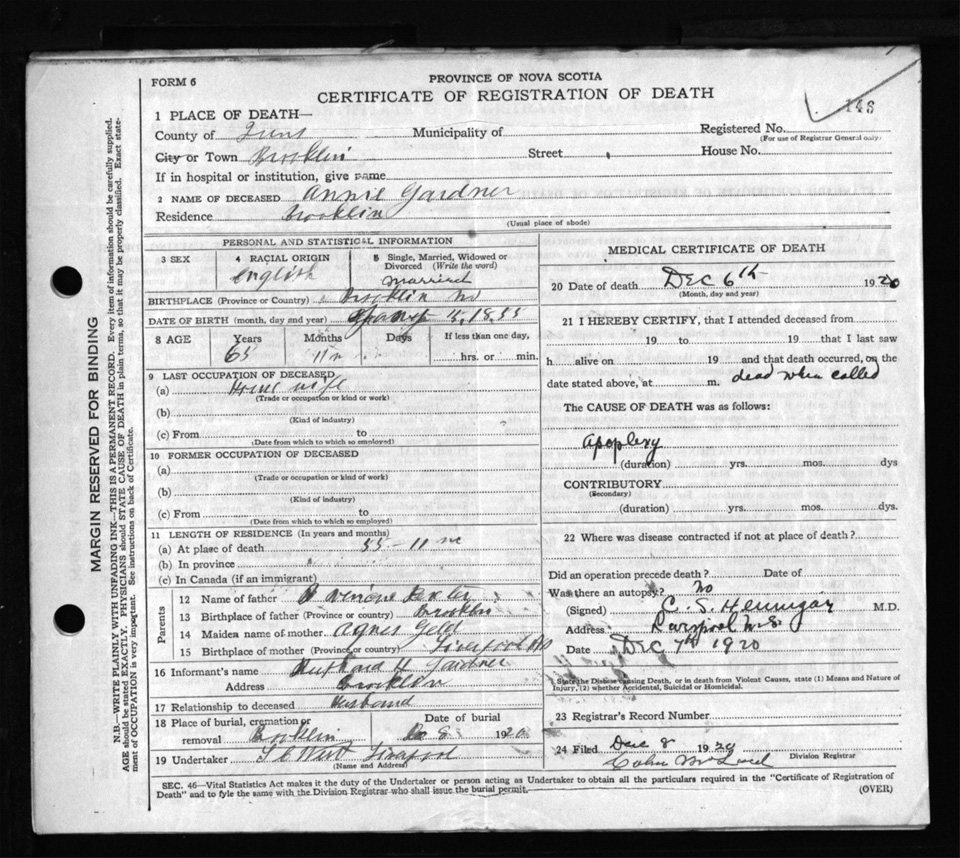 FORM 6
PROVINCE OF NOVA SCOTIA
CERTIFICATE OF REGISTRATION OF DEATH
143
1 PLACE OF DEATH—
County of Municipality of Registered No.
(For use of Registrar General only)
City or Town Brooklin Street House No.
If in hospital or institution, give name
2 NAME OF DECEASED Annie Gardner
Residence Brooklin
(Usual place of abode)
PERSONAL AND STATISTICAL INFORMATION
3 SEX
4 RACIAL ORIGIN
English
5 Single, Married, Widowed or Divorced (Write the word)
Married
BIRTHPLACE (Province or Country) Brooklin
DATE OF BIRTH (month, day and year) 1855
8 AGE Years Months Days If less than one day,
65 11 hrs. or min.
9 LAST OCCUPATION OF DECEASED
(a) House wife
(Trade or occupation or kind or work)
(b)
(Kind of industry)
(c) From to
(Date from which to which so employed)
10 FORMER OCCUPATION OF DECEASED
(a)
(Trade or occupation or kind or work)
(b)
(Kind of industry)
(c) From to
(Date from which to which so employed)
11 LENGTH OF RESIDENCE (In years and months)
(a) At place of death 55-11
(b) In province "
(c) In Canada (if an immigrant)
Parents
12 Name of father
13 Birthplace of father (Province or country) Brooklin
14 Maiden name of mother Agnes
15 Birthplace of mother (Province or country) Liverpool NS
16 Informant's name H Gardner
Address Brooklin
17 Relationship to deceased Husband
18 Place of burial, cremation or removal Brooklin
Date of burial
Dec 8 1920
19 Undertaker West Liverpool
(Name and Address)
MEDICAL CERTIFICATE OF DEATH
20 Date of death Dec 6th 1920
(Month, day and year)
21 I HEREBY CERTIFY, that I attended deceased from
19 to 19 that I last saw
h alive on 19 and that death occurred, on the
date stated above, at m. dead when called
The CAUSE OF DEATH was as follows:
Apoplexy
(duration) yrs. mos. dys
CONTRIBUTORY
(Secondary)
(duration) yrs. mos. dys.
22 Where was disease contracted if not at place of death?
Did an operation precede death? Date of
Was there an autopsy? No
(Signed) C. S. Hennigar M.D.
Address Liverpool N.S.
Date Dec 7th 1920
1 State the Disease causing Death, or in death from Violent Causes, state (1) Means and Nature of
Injury, (2) whether Accidental, Suicidal or Homicidal.
23 Registrar's Record Number
24 Filed Dec 8 1920
Division Registrar
SEC. 46—Vital Statistics Act makes it the duty of the Undertaker or person acting as Undertaker to obtain all the particulars required in the "Certificate of Registration of
Death" and to fyle the same with the Division Registrar who shall issue the burial permit.
(OVER)
MARGIN RESERVED FOR BINDING
N.B.—WRITE PLAINLY WITH UNFADING INK—THIS IS A PERMANENT RECORD. Every item of information should be carefully supplied.
AGE should be stated EXACTLY. PHYSICIANS should STATE CAUSE OF DEATH in plain terms, so that it may be properly classified. Exact state-
ment of OCCUPATION is very important. See instructions on back of Certificate.